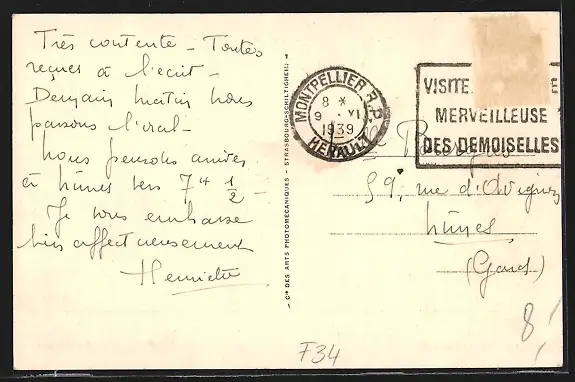 Très contente - Toutes
reçues à l'écrit -
Demain matin nous
passons l'oral -
nous pensons arriver
à Nîmes vers 7 H 1/2 -
Je vous embrasse
bien affectueusement
Henriette
Cie DES ARTS PHOTOMÉCANIQUES - STRASBOURG-SCHILTIGHEIM -
MONTPELLIER R.P.
8 *
9 · XI
1939
HERAULT
VISITE
MERVEILLEUSE
DES DEMOISELLES
59, rue d'Avignon
Nîmes
(Gard)
8,
F34